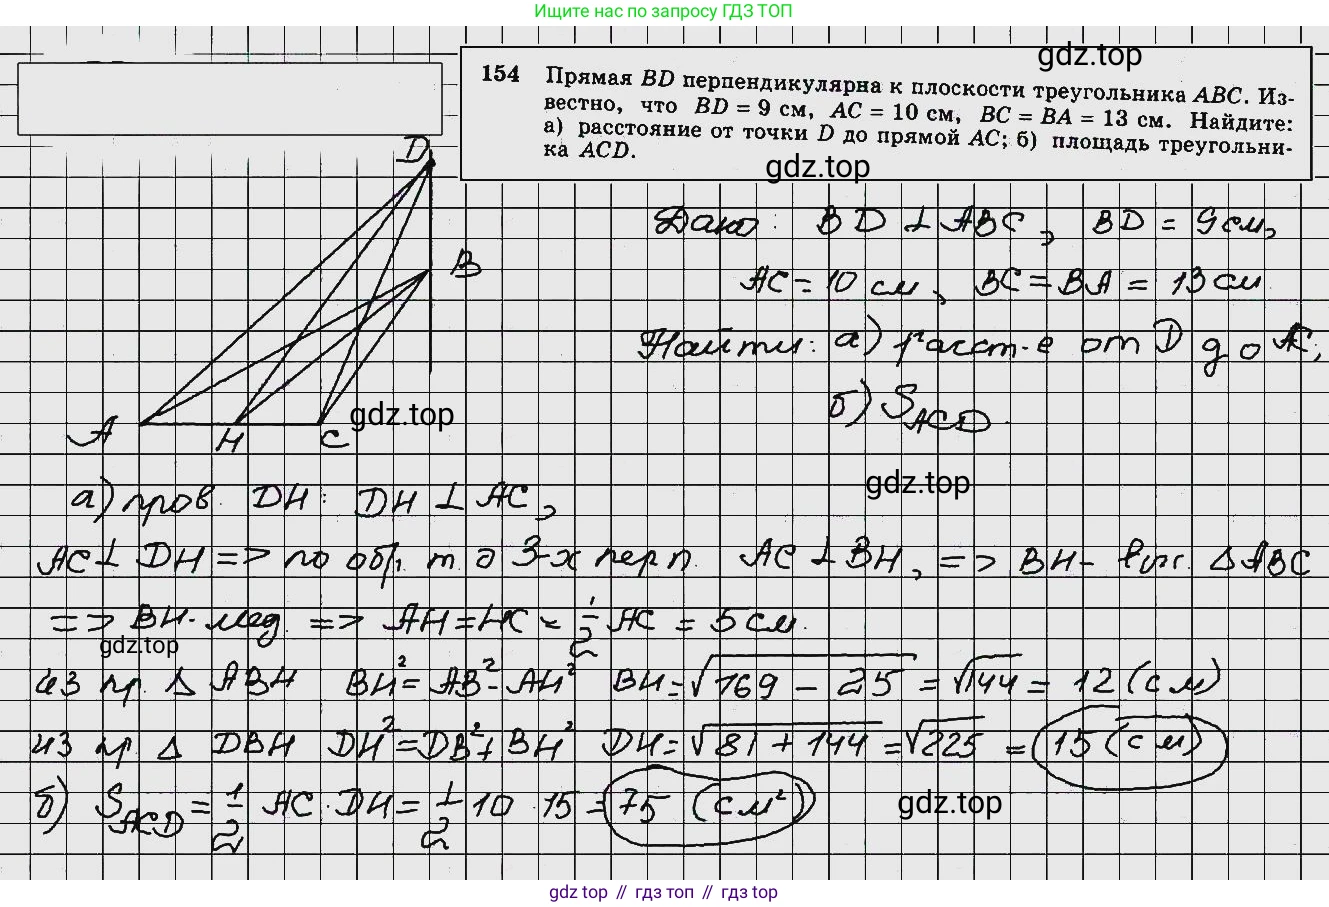 Ищите нас по запросу ГДЗ ТОП
gdz.top
154 Прямая BD перпендикулярна к плоскости треугольника ABC. Из-
вестно, что BD = 9 см, AC = 10 см, BC = BA = 13 см. Найдите:
а) расстояние от точки D до прямой AC; б) площадь треугольни-
ка ACD.
gdz.top
D
B
A
H
C
gdz.top
Дано: BD ⊥ ABC, BD = 9 см,
AC = 10 см, BC = BA = 13 см
Найти: а) расст-е от D до AC;
б) S_ACD.
gdz.top
а) пров. DH: DH ⊥ AC,
AC ⊥ DH => по обр. т. о 3-х перп. AC ⊥ BH, => BH - выс. Δ ABC
=> BH - мед. => AH = HC = 1/2 AC = 5 см.
gdz.top
из пр. Δ ABH BH² = AB² - AH² BH = √169 - 25 = √144 = 12 (см)
из пр. Δ DBH DH² = DB² + BH² DH = √81 + 144 = √225 = 15 (см)
б) S_ACD = 1/2 AC · DH = 1/2 10 · 15 = 75 (см²)
gdz.top
gdz top // гдз топ // gdz top